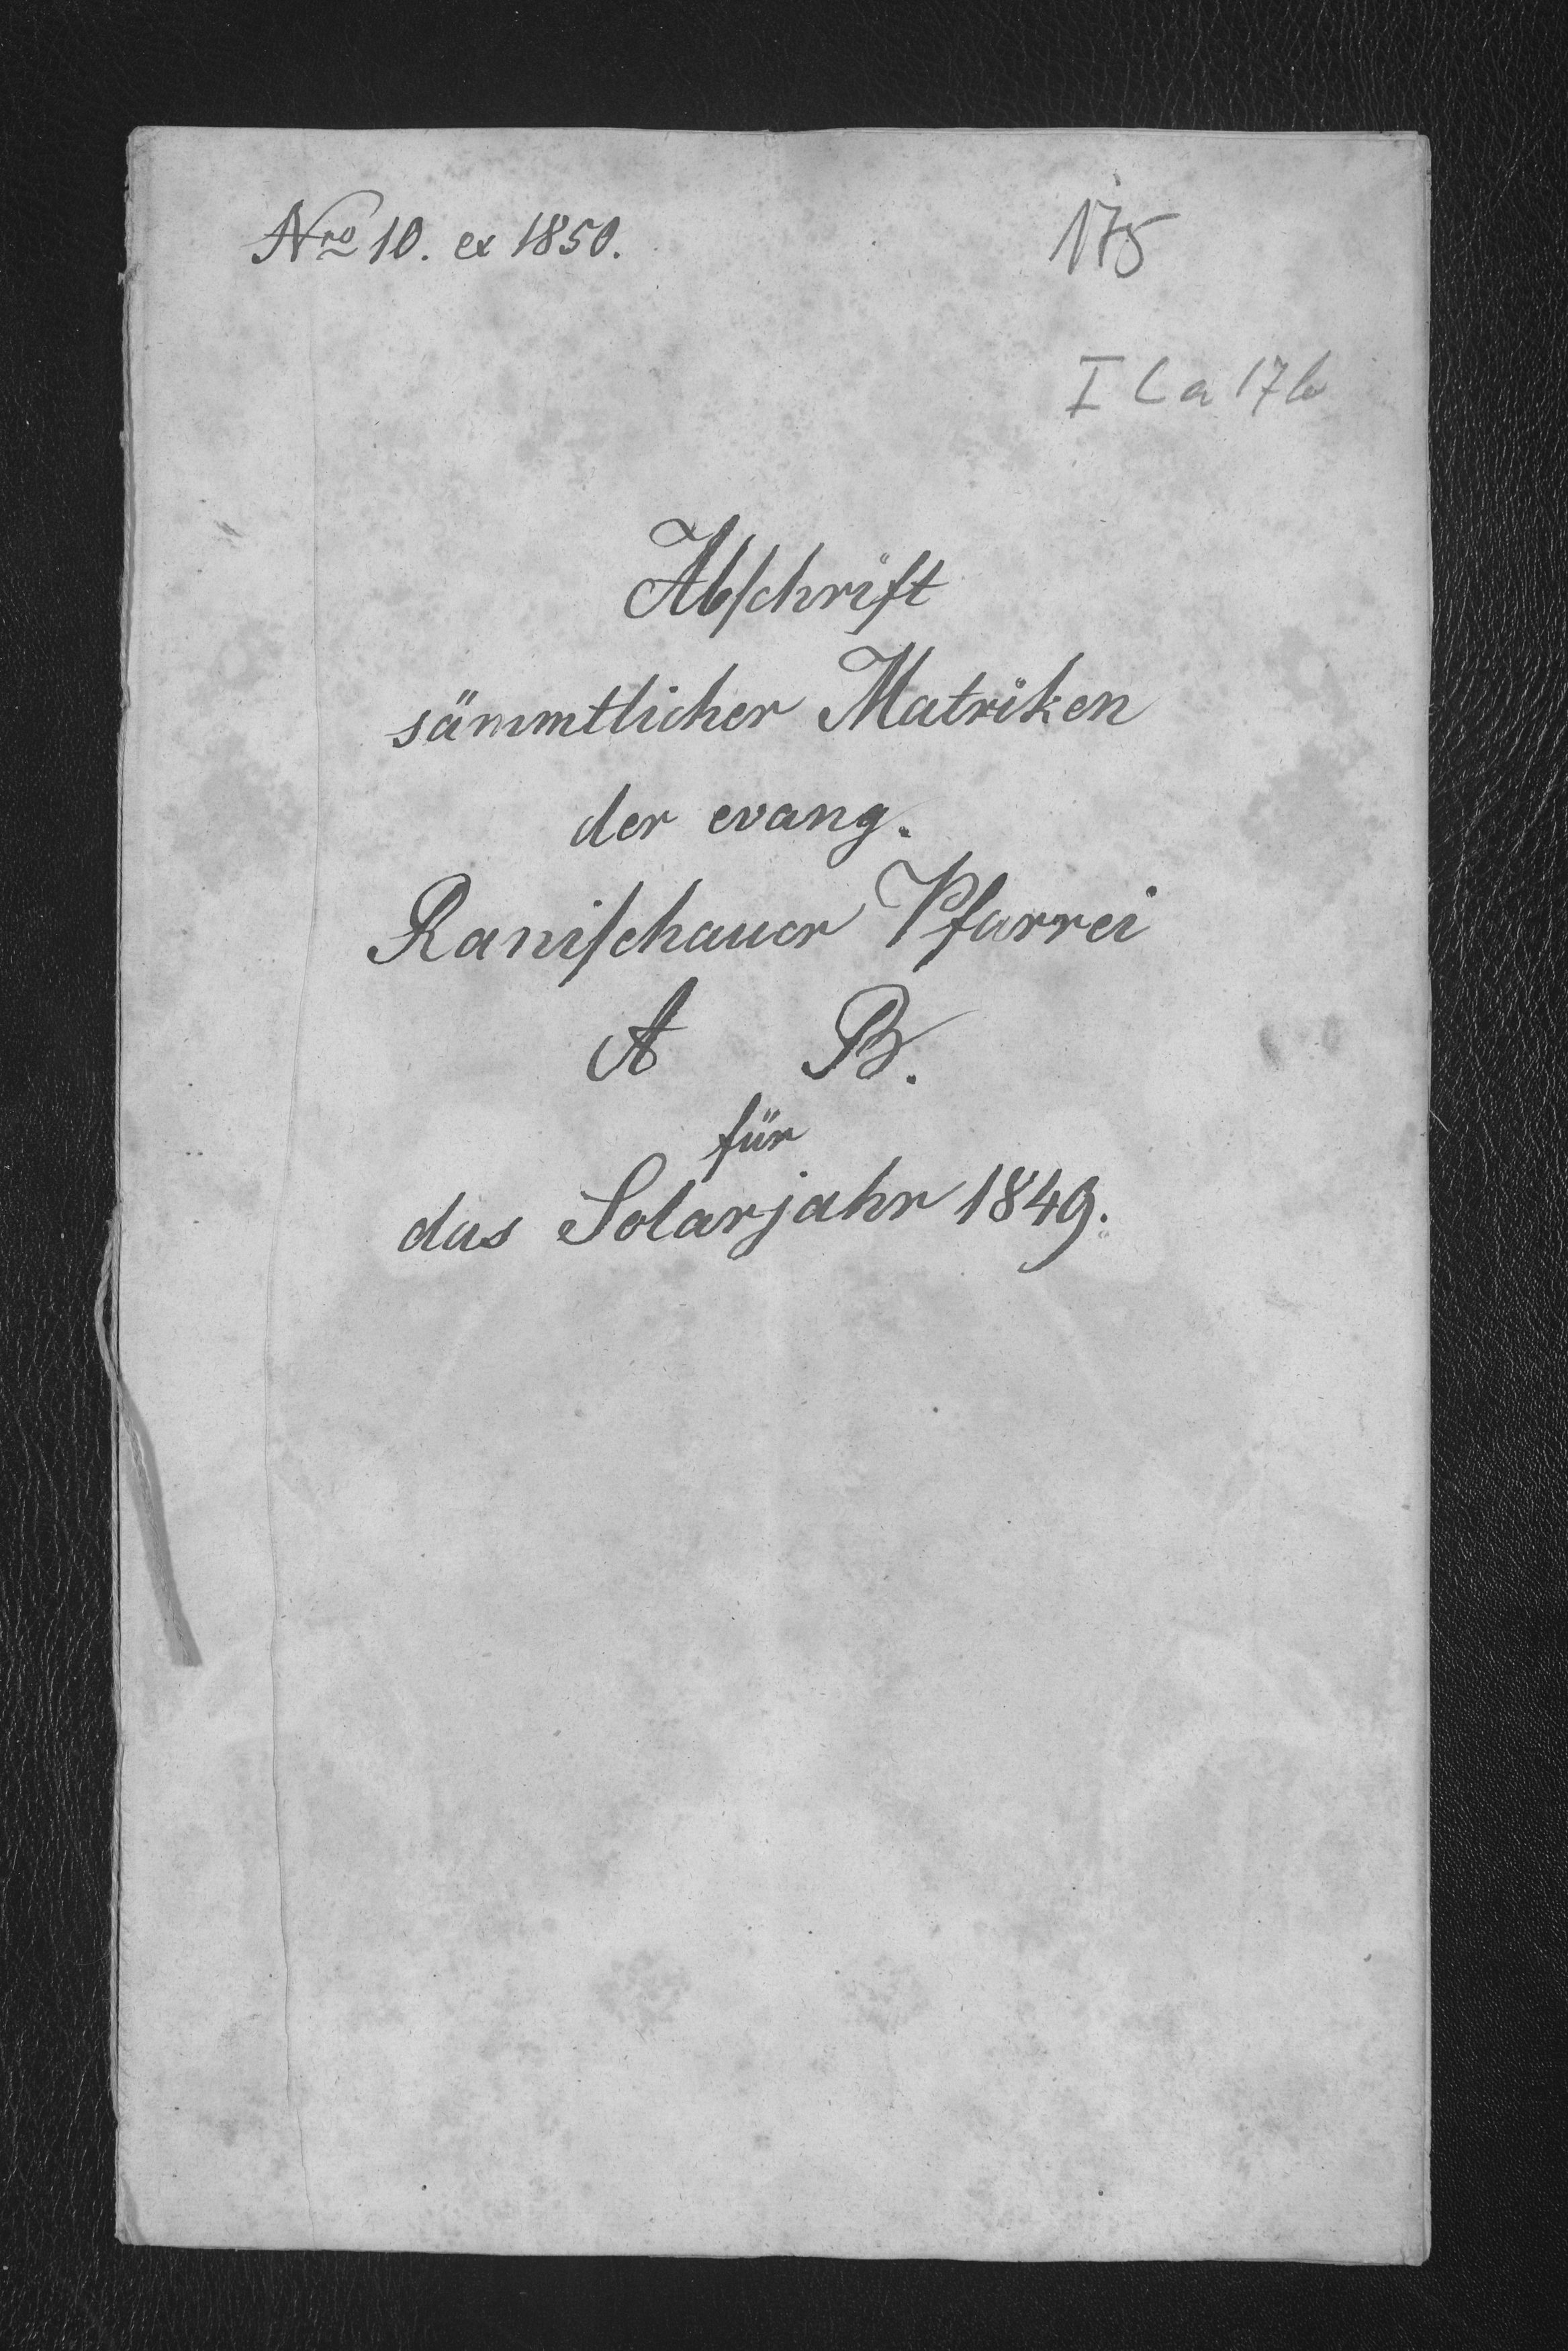 Nro 10. ex 1850.
175
I C a 17b
Abschrift
sämmtlicher Matriken
der evang.
Ranischauer Pfarrei
A B.
für
das Solarjahr 1849.